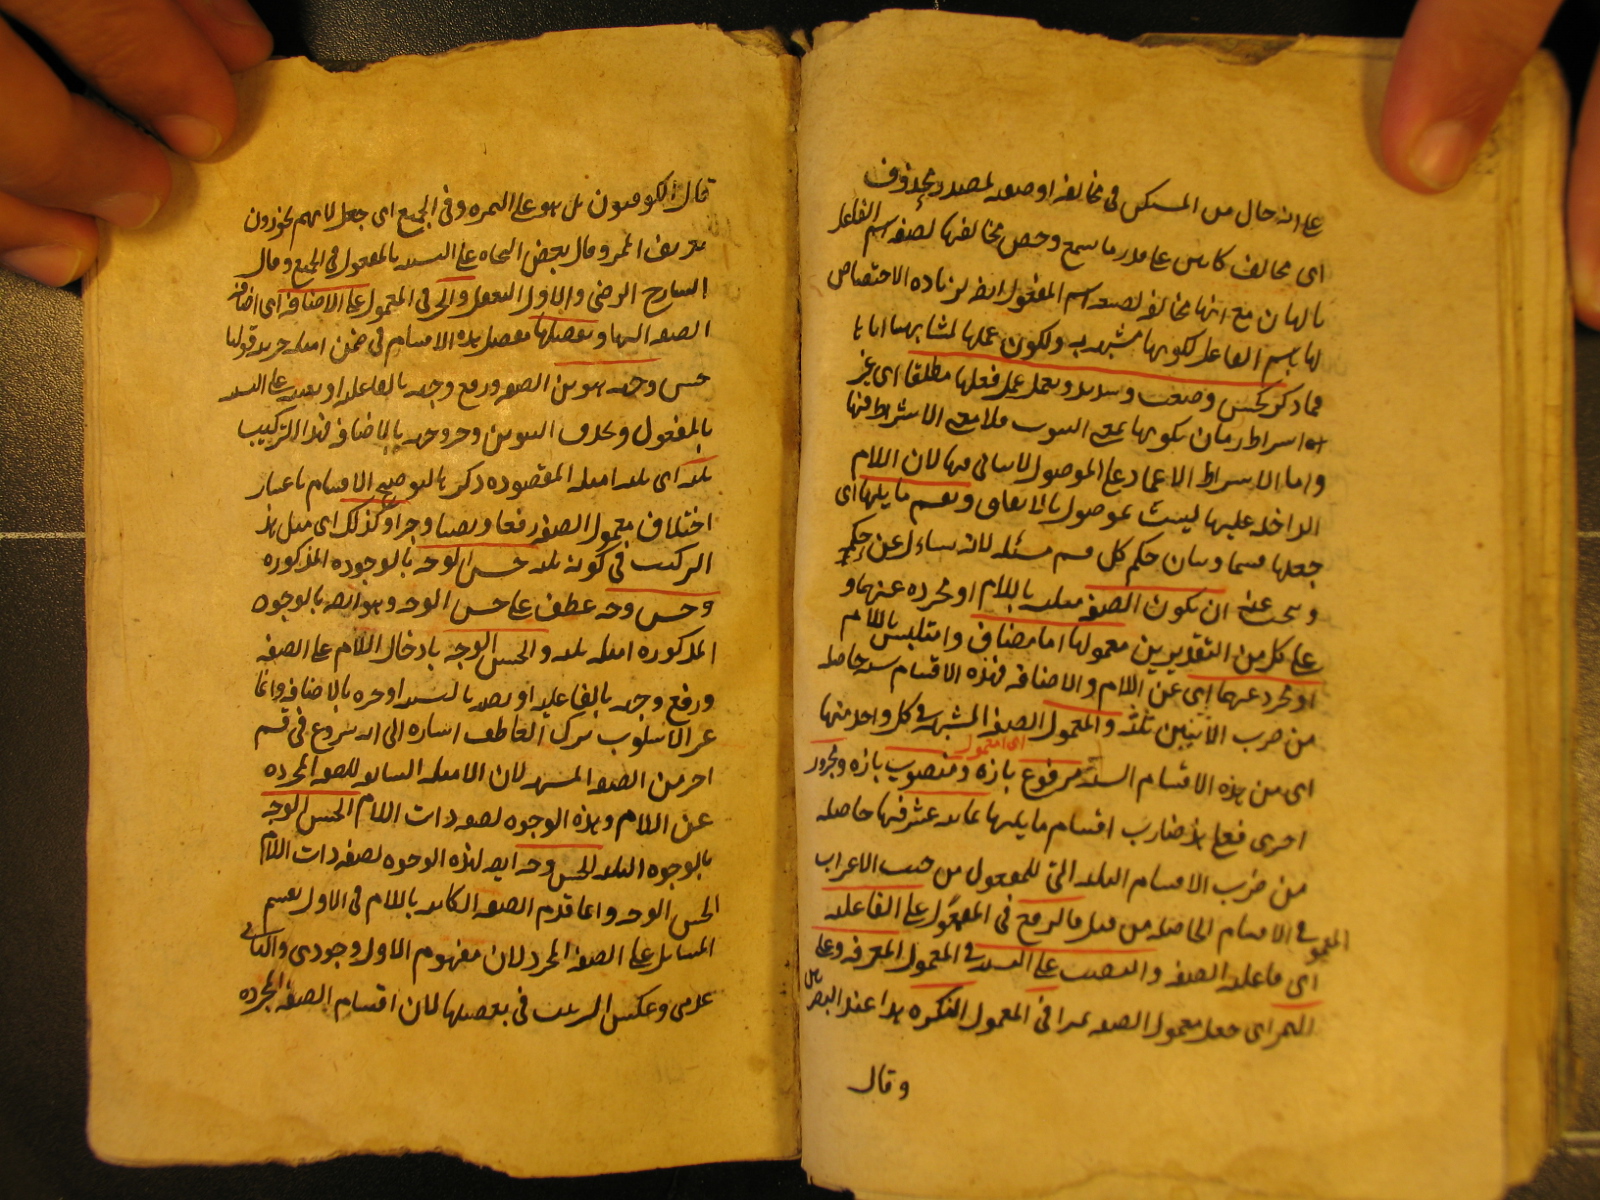 على انه حال من المستكن في مخالفة او صفة لمصدر محذوف
اى مخالف كائن على قدر ما سمع وخص مخالفتها لصيغة اسم الفاعل
بالبيان مع انها مخالفة لصيغة اسم المفعول ايضا لزيادة الاختصاص
لها باسم الفاعل لكونها مشبهة به ولكون عملها لمشابهتها اياه
فيما ذكر كحسن وصعب وشديد وتعمل عمل فعلها مطلقا اى غير
اشتراط زمان لكونها بمعنى الثبوت فلا معنى لاشتراطه فيها
واما الاشتراط الاعتماد على الموصول لا يتأتى فيها لان اللام
الداخلة عليها ليست بموصول بالاتفاق وتقسيم مايلها اى
جعلها قسما وبيان حكم كل قسم مسئلة لانه يساءل عن حكمه
ويبحث عنه ان تكون الصفة متلبسة باللام او مجردة عنها و
على كل من التقديرين معمولها اما مضاف او متلبس باللام
او مجرد عنهما اى عن اللام والاضافة فهذه الاقسام ستة حاصلة
من ضرب الاثنين ثلثة والمعمول الصفة المشبهة في كل واحد منها
اى المعمول
اى من هذه الاقسام الستة مرفوع تارة ومنصوب تارة ومجرور
اخرى فعلى هذا صارت اقسام مايلها ثمانية عشر فانها حاصلة
من ضرب الاقسام الثلثة التى للمعمول من حيث الاعراب
في الاقسام الحاصلة من قبل فالرفع في المعمول على الفاعلية
اى فاعلية الصفة والنصب على التشبيه في المعمول المعرفة وعلى
التميز اى جعل معمول الصفة تميزا في المعمول النكرة هذا عند البصريين
وقال
قال الكوفيون بل هو على التميز في الجميع اى جعل لانهم يجوزون
تعريف المميز وقال بعض النحاة على التشبيه بالمفعول في الجميع وقال
الشارح الرضى والاول التفصيل والجر في المعمول على الاضافة اى اضافة
الصفة اليها وتفصيلها تفصيل هذه الاقسام في ضمن امثلة جزئية قولنا
حسن وجهه بتنوين الصفة ورفع وجهه بالفاعلية او نصبه على التشبيه
بالمفعول وبحذف التنوين وجر وجهه بالاضافة فهذا التركيب
ثلثة اى ثلثة امثلة المقصودة ذكرها لتوضيح الاقسام باعتبار
اختلاف معمول الصفة رفعا ونصبا وجرا وكذلك اى مثل هذا
التركيب في كونه ثلثة حسن الوجه بالوجوه المذكورة
وحسن وجه عطف على حسن الوجه وهو ايضا بالوجوه
المذكورة امثلة ثلثة والحسن الوجه بادخال اللام على الصفة
ورفع وجهه بالفاعلية او نصبه بالتشبيه او جره بالاضافة وانما
غير الاسلوب بترك العاطف اشارة الى انه شروع في قسم
اخر من الصفة المشبهة لان الامثلة السابقة للصفة المجردة
عن اللام وهذه الوجوه لصفة ذات اللام الحسن الوجه
بالوجوه الثلثة الحسن وجه ايضا لهذه الوجوه لصفة ذات اللام
الحسن الوجه وانما قدم الصفة الكائنة باللام في الاول تقسيم
المسائل على الصفة المجردة لان مفهوم الاول وجودى والثانى
عدمى وعكس الترتيب في تفصيلها لان اقسام الصفة المجردة